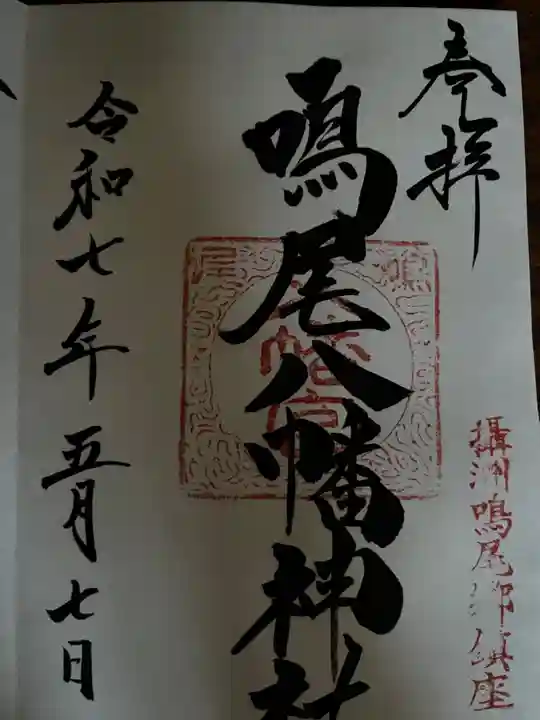 奉拝
攝州鳴尾郷鎮座
鳴尾八幡神社
鳴尾
八幡宮
令和七年五月七日